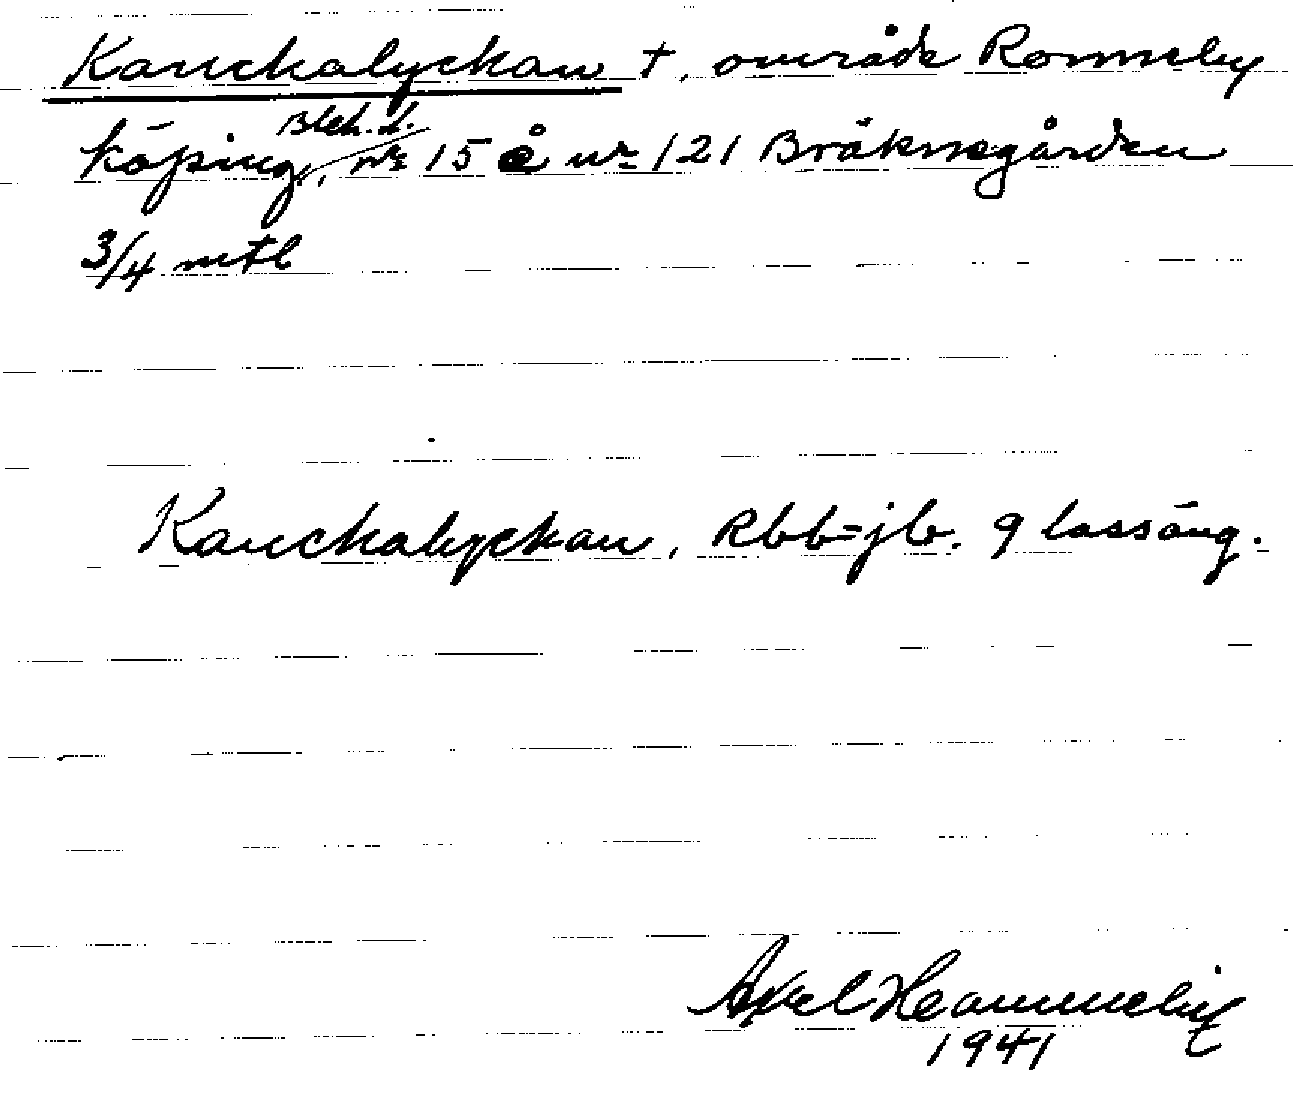 Kanckalyckan †, område Ronneby
köping, Blek. l. nr 15 å nr 121 Bräknegården
3/4 mtl
Kanckalyckan, Rbb=jb. 9 lassäng.
Axel
1941